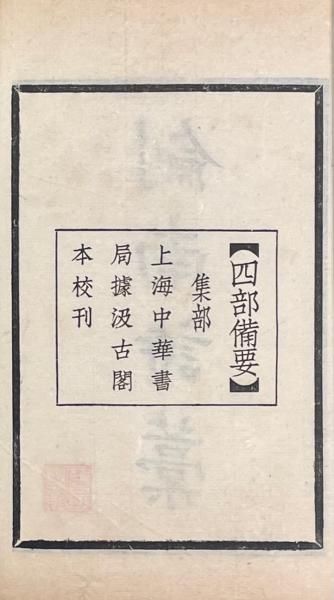 【四部備要】
集部
上海中華書
局據汲古閣
本校刊